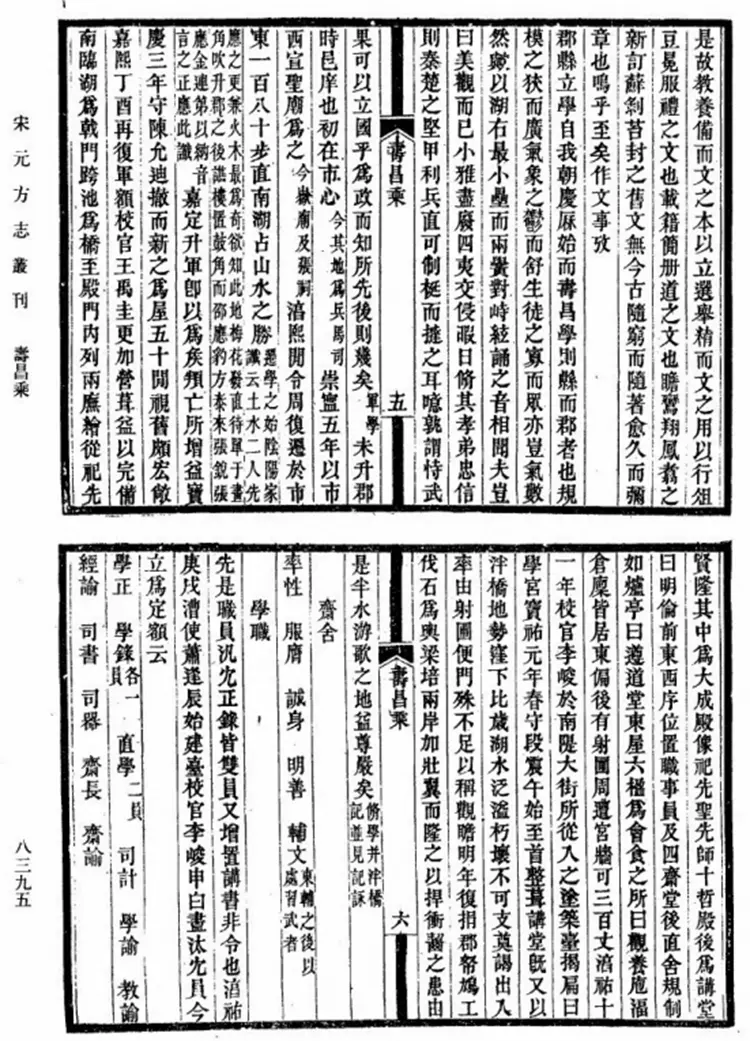 是故教養備而文之本以立選舉精而文之用以行俎
豆冕服禮之文也載籍簡册道之文也瞻鸞翔鳳翥之
新訂蘚剜苔封之舊文無今古隨窮而隨著愈久而彌
章也嗚乎至矣作文事攷
郡縣立學自我朝慶厯始而壽昌學則縣而郡者也規
模之狹而廣氣象之鬱而舒生徒之寡而眾亦豈氣數
然歟以湖右最小壘而兩黌對峙絃誦之音相聞夫豈
曰美觀而已小雅盡廢四夷交侵暇日脩其孝弟忠信
則秦楚之堅甲利兵直可制梃而撻之耳噫孰謂恃武
壽昌乘 五
果可以立國乎爲政而知所先後則幾矣 軍學 未升郡
時邑庠也初在市心 今其地爲兵馬司 崇寧五年以市
西宣聖廟爲之 今嶽廟及張祠 湻熙閒令周復遷於市
東一百八十步直南湖占山水之勝 遷學之始陰陽家讖云土水二人先
應之更兼火木最爲奇欲知此地梅花發直待單于畫
角吹升郡之後譙樓置鼓角而邵應豹方泰來張貌張
應金連弟以納音言之正應此讖 嘉定升軍卽以爲矦頖亡所增益寶
慶三年守陳允迪撤而新之爲屋五十閒視舊頗宏敞
嘉熙丁酉再復軍額校官王禹圭更加營葺益以完備
南臨湖爲戟門跨池爲橋至殿門内列兩廡繪從祀先
賢隆其中爲大成殿像祀先聖先師十哲殿後爲講堂
曰明倫前東西序位置職事員及四齋堂後直舍規制
如爐亭曰遵道堂東屋六楹爲會食之所曰觀養庖湢
倉廩皆居東偏後有射圃周遭宮牆可三百丈湻祐十
一年校官李峻於南隄大街所從入之塗築臺揭扁曰
學宮寶祐元年春守段震午始至首整葺講堂旣又以
泮橋地勢窪下比歲湖水泛溢朽壞不可支莫謁出入
率由射圃便門殊不足以稱觀瞻明年復捐郡帑鳩工
伐石爲輿梁培兩岸加壯翼而隆之以捍衝齧之患由
壽昌乘 六
是半水游歌之地益尊嚴矣 脩學并泮橋記並見記詠
齋舍
率性 服膺 誠身 明善 輔文 東轅之後以處習武者
學職
先是職員汎宂正錄皆雙員又增置講書非令也湻祐
庚戌漕使蕭逢辰始建臺校官李峻申白盡汰宂員今
立爲定額云
學正 學錄 各一員 直學 二員 司計 學諭 教諭
經諭 司書 司器 齋長 齋諭
宋元方志叢刊 壽昌乘
八三九五